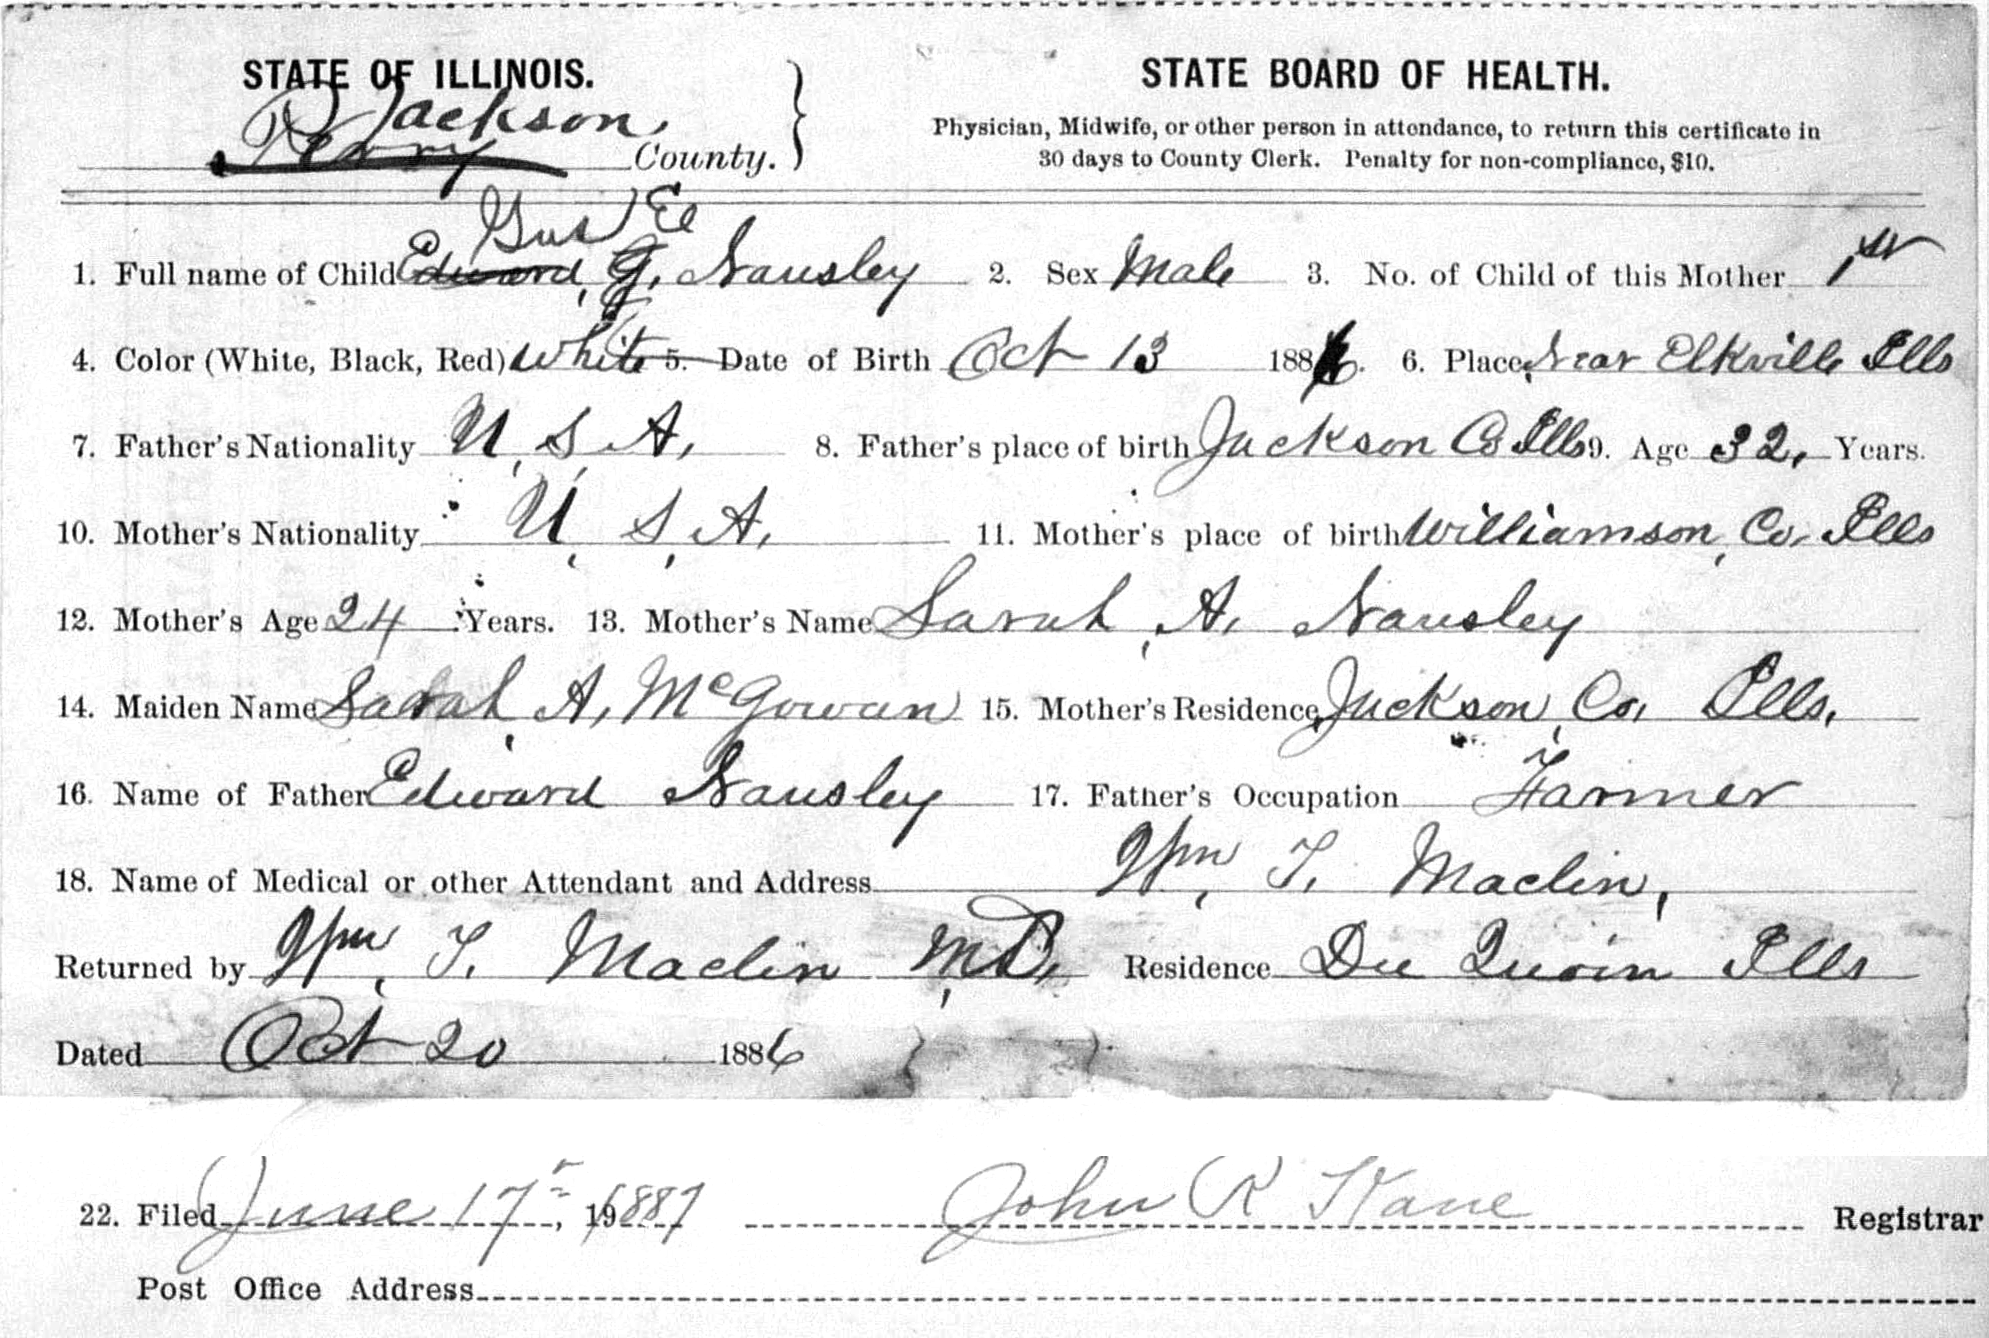 STATE OF ILLINOIS. STATE BOARD OF HEALTH.
Jackson
Perry County.
Physician, Midwife, or other person in attendance, to return this certificate in
30 days to County Clerk. Penalty for non-compliance, $10.
Gus E
1. Full name of Child Edward G. Nausley 2. Sex Male 3. No. of Child of this Mother 1st
4. Color (White, Black, Red) White 5. Date of Birth Oct 13 1886. 6. Place Near Elkville Ills
7. Father's Nationality U. S. A. 8. Father's place of birth Jackson Co Ills 9. Age 32, Years.
10. Mother's Nationality U. S. A. 11. Mother's place of birth Williamson, Co. Ills
12. Mother's Age 24 Years. 13. Mother's Name Sarah A. Nausley
14. Maiden Name Sarah A. McGowan 15. Mother's Residence Jackson Co. Ills.
16. Name of Father Edward Nausley 17. Father's Occupation Farmer
18. Name of Medical or other Attendant and Address Wm. T. Maclin,
Returned by Wm. T. Maclin M.D. Residence Du Quoin Ills
Dated Oct 20 1886
22. Filed June 17, 1887 John R Kane Registrar
Post Office Address